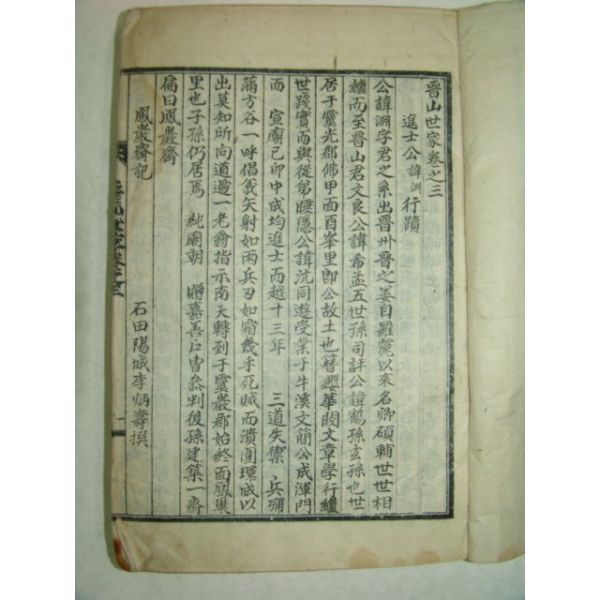 晋山世家卷之三
進士公諱淵行蹟
公諱淵字君之系出晋州晋之姜自羅麗以來名卿碩輔世世相
繼而至晋山君文良公諱希孟五世孫司評公諱鶴孫玄孫也世
居于靈光郡佛甲面百峯里卽公故土也簪纓華閥文章學行繼
世踐實而與從弟睡隱公諱沆同遊受業于牛溪文簡公成渾門
而 宣廟己卯中成均進士而越十三年 三道失禦
蒲方谷一呼倡義矢射如雨兵刃如霜幾乎死賊而潰圍環城以
出莫知所向道遇一老翁指示南天轉到于靈巖郡始終面鳳巢
里也子孫仍居焉 純廟朝 贈嘉善戶曹叅判後孫建築一齋
扁曰鳳巖齋
鳳巖齋記 石田陽城李炳壽撰